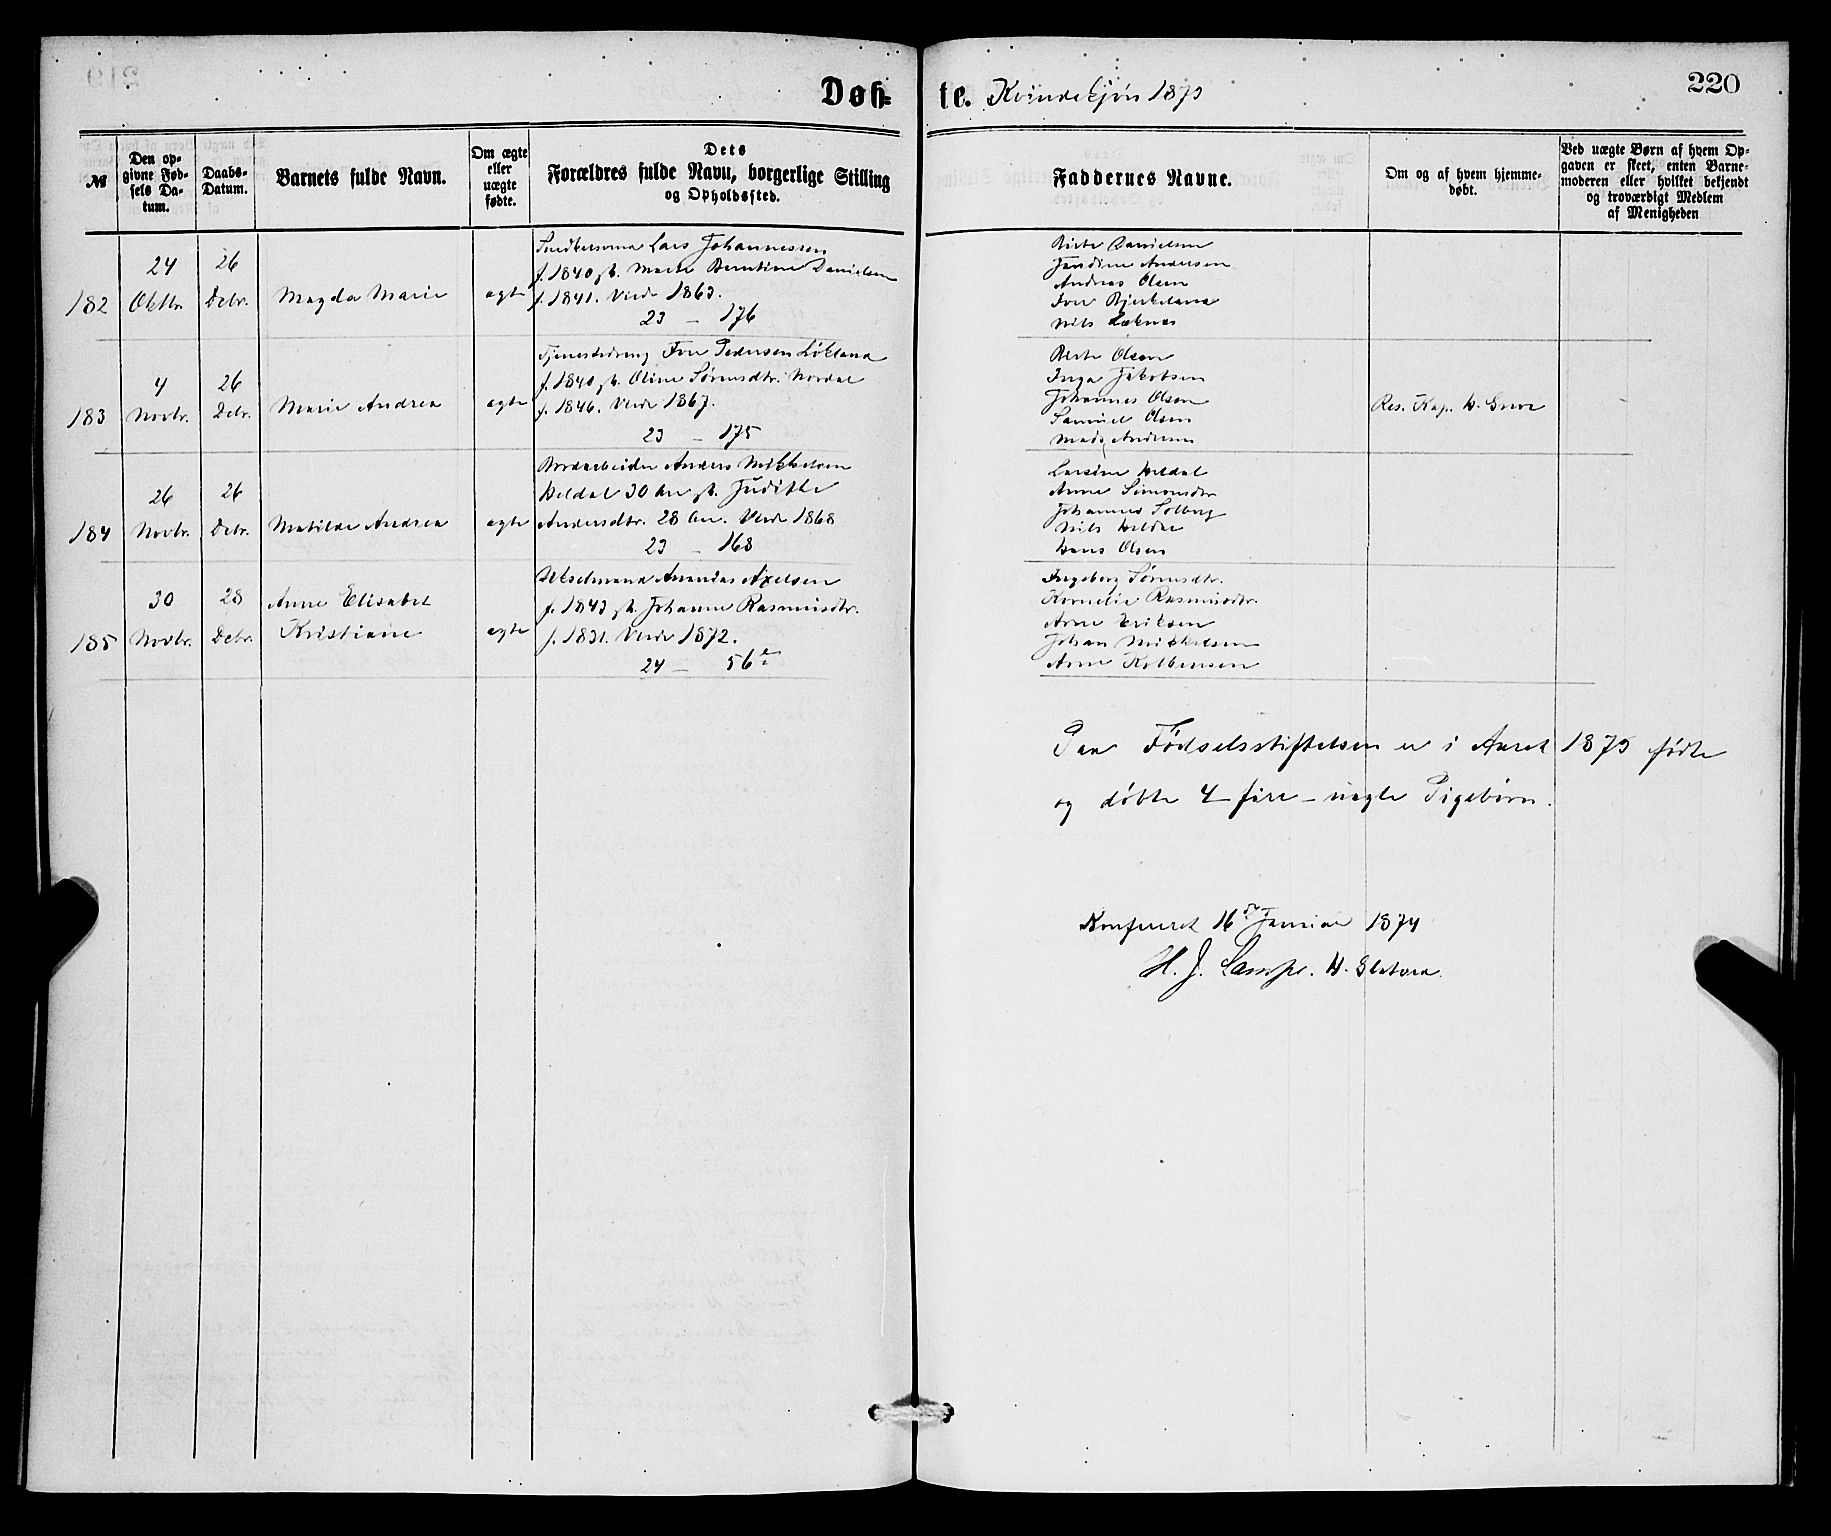 Døb=te. Kvindekjøn 1873
220
№
Den op-
givne Fød-
sels Da-
tum.
Daabs-
Datum.
Barnets fulde Navn.
Om ægte
eller
uægte
fødte.
Dets
Forældres fulde Navn, borgerlige Stilling
og Opholdssted.
Faddernes Navne.
Om og af hvem hjemme-
døbt.
Ved uægte Børn af hvem Op-
gaven er skeet, enten Barne-
moderen eller hvilket bekjendt
og troværdigt Medlem
af Menigheden
182
24
Oktbr.
26
Debr.
Magda Marie
ægte
Snedkersvend Lars Johannessen
f. 1840 g. m. Marte Berntine Danielsen
f. 1841. Viede 1863.
23 — 176
Birte Danielsen
Jendine Andersen
Andreas Olsen
Iver Bjerkeland
Nils Læknes
183
4
Novbr.
26
Debr.
Marie Andrea
ægte
Tjenestedreng Iver Pedersen Løkland
f. 1840 Oline Sørensdtr. Nordal
f. 1846. Viede 1867.
23 — 175
Berte Olsen
Inga Jakobsen
Johannes Olsen
Samuel Olsen
Mads Andersen
Res. Kap. H. Greve
184
26
Novbr.
26
Debr.
Matilde Andrea
ægte
Jordarbeider Anders Mikkelsen
Heldal 30 Aar Judithe
Andersdtr. 28 Aar. Viede 1868
23 — 168
Larsine Heldal
Anne Simonsdtr
Johannes Solberg
Nils Heldal
Hans Olsen
185
30
Novbr.
28
Debr.
Anne Elisabet
Kristiane
ægte
Ananias Axelsen
f. 1843 Johanne Rasmusdtr.
f. 1831. Viede 1872.
24 — 56
Ingeborg Sørensdtr.
Kornelia Rasmusdtr.
Arne Eriksen
Johan Mikkelsen
Arne Kolbensen
Paa Fødselsstiftelsen er i Aaret 1873 fødte
og døbte 4 - fire - uægte Pigebørn.
Konfereret 16de Januar 1874
H. J. Lampe. H. Slatvra